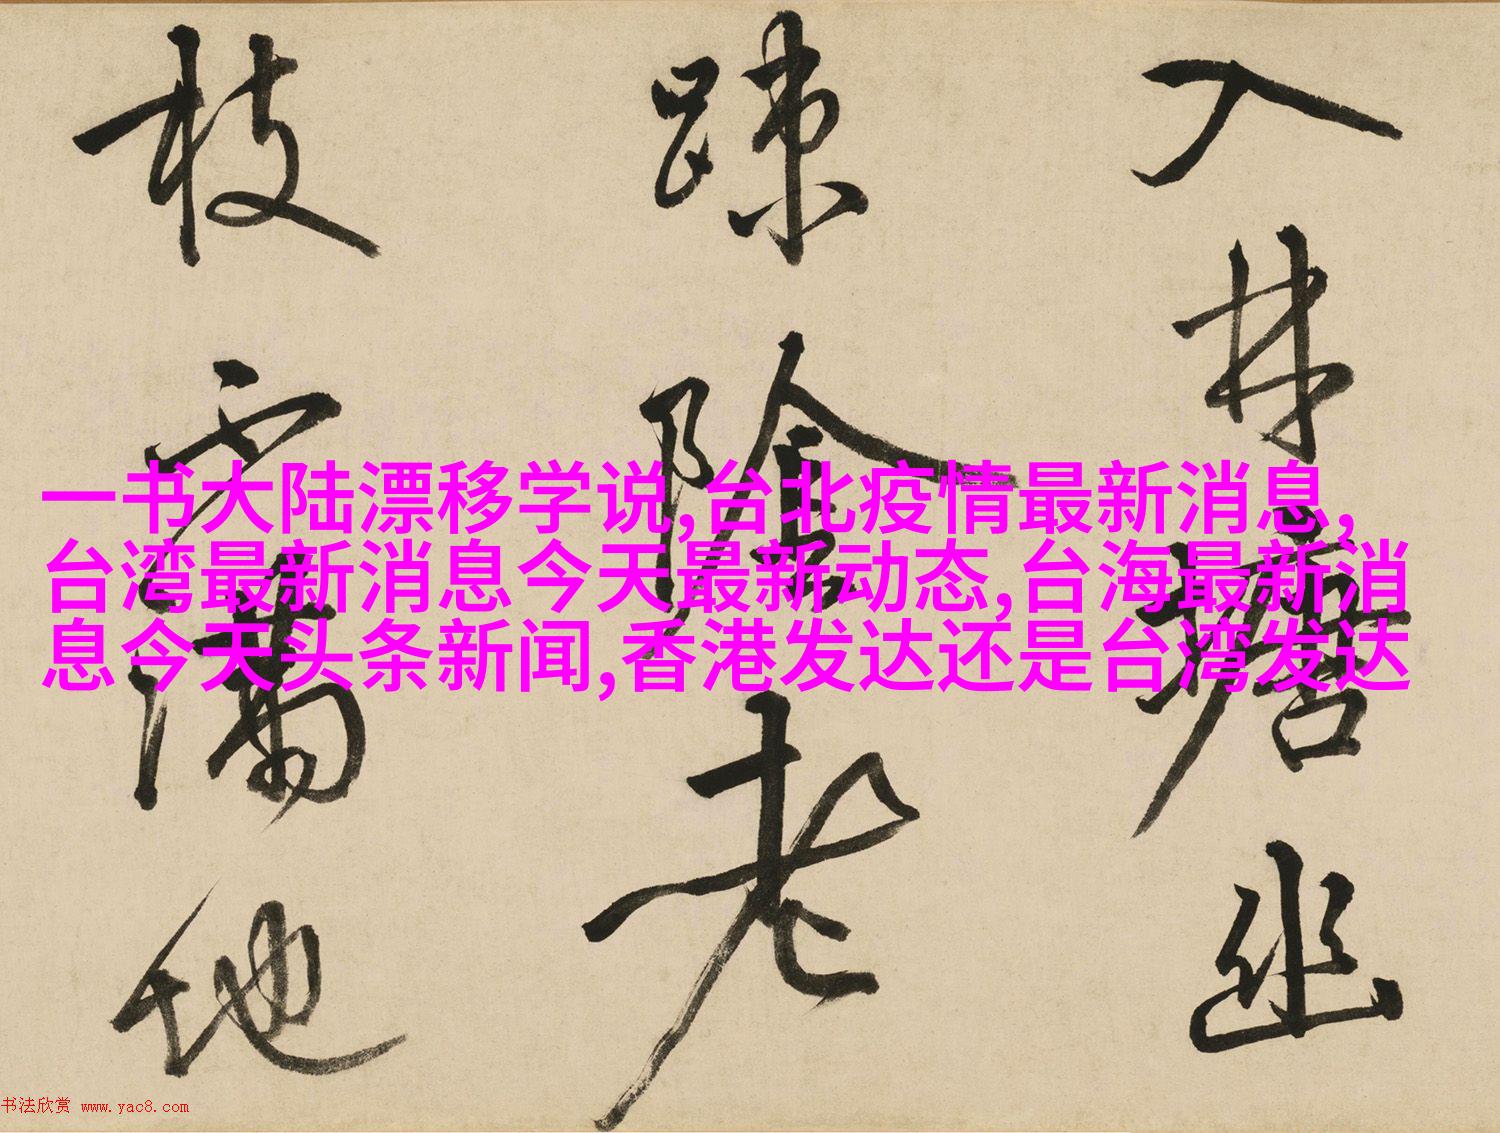 入林幽
疎陰老
枝滿地
一书大陆漂移学说,台北疫情最新消息,
台湾最新消息今天最新动态,台海最新消
息今天头条新闻,香港发达还是台湾发达
书法欣赏 www.yac8.com